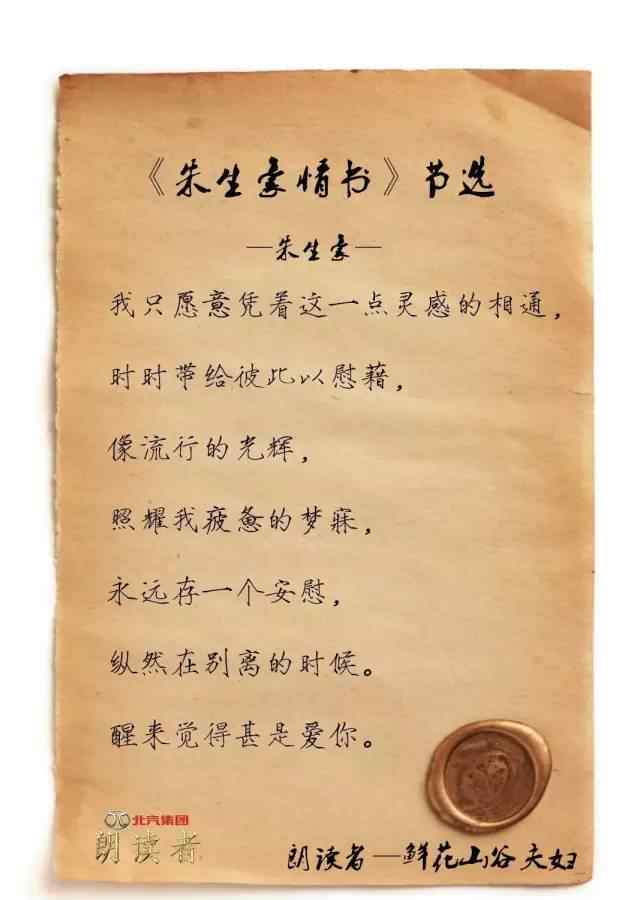 《朱生豪情书》节选
—朱生豪—
我只愿意凭着这一点灵感的相通，
时时带给彼此以慰藉，
像流行的光辉，
照耀我疲惫的梦寐，
永远存一个安慰，
纵然在别离的时候。
醒来觉得甚是爱你。
北汽集团
朗读者
朗读者—鲜花山谷夫妇